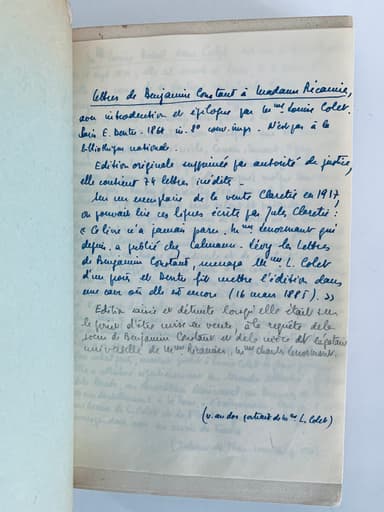 Lettres de Benjamin Constant à Madame Récamier,
avec introduction et épilogue par Mme Louise Colet.
Paris E. Dentu - 1864 in-8° couv. imp. - N'est pas à la
bibliothèque nationale.
Edition originale supprimée par autorité de justice,
elle contient 74 lettres inédites.
Sur un exemplaire de la vente Claretie en 1917,
on pouvait lire ces lignes écrites par Jules Claretie :
« Ce livre n'a jamais paru. Mme Lenormant qui
depuis a publié chez Calmann-Lévy les Lettres
de Benjamin Constant, menaça Mme L. Colet
d'un procès et Dentu fit mettre l'édition dans
une cave où elle est encore (16 mars 1885). »
Edition saisie et détruite lorsqu'elle était sur
le point d'être mise en vente, à la requête de la
soeur de Benjamin Constant et de la nièce et légataire
universelle de Mme Récamier, Mme Charles Lenormant.
(v. au dos portrait de Mme L. Colet)